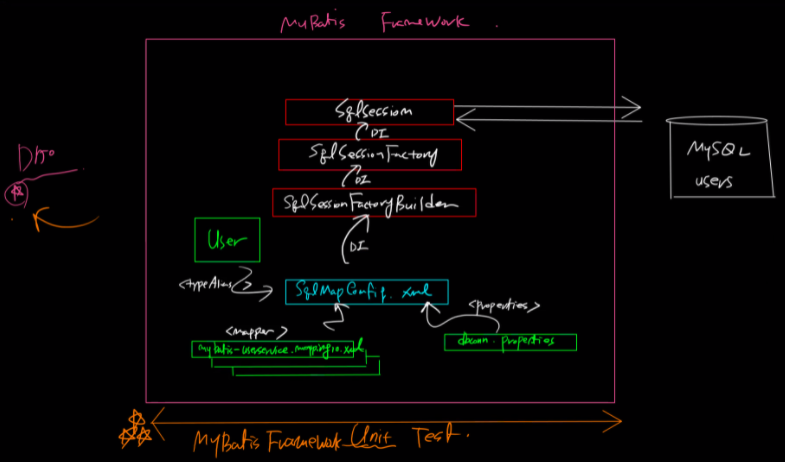 MyBatis Framework.
SqlSession
DI
SqlSessionFactory
DI
SqlSessionFactoryBuilder
DI
MySQL
users
User
<typeAlias>
SqlMapConfig.xml
<properties>
<mapper>
dbconn.properties
MyBatis Framework Unit Test.